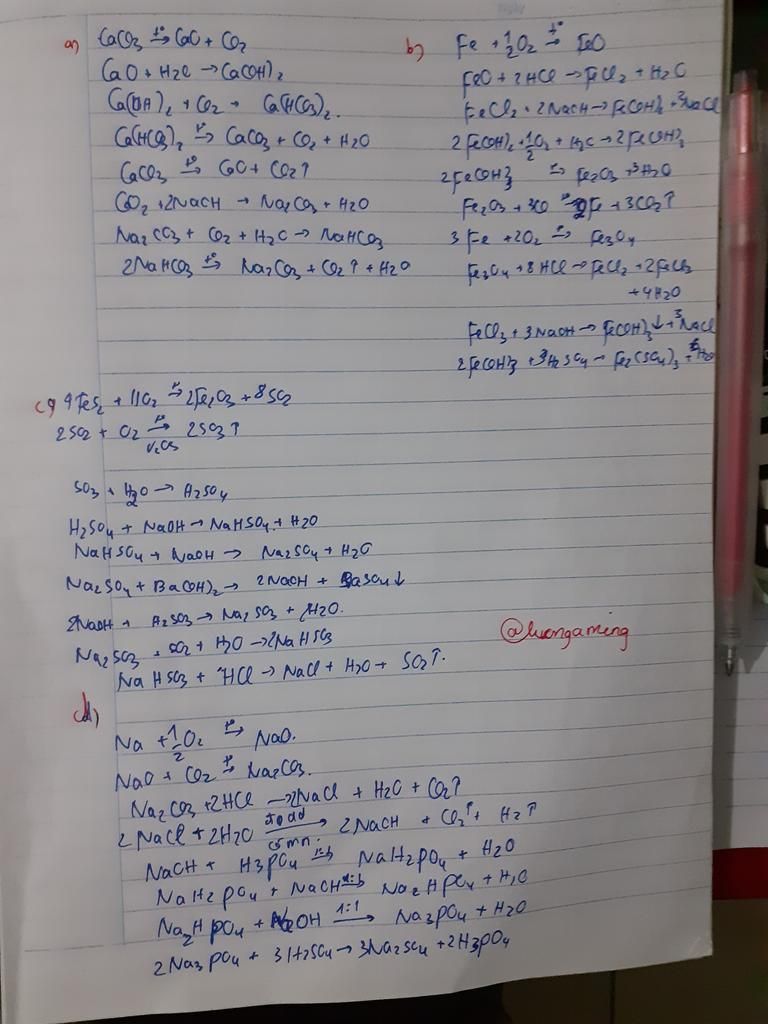 a) CaCO3 t°→ CaO + CO2
CaO + H2O → Ca(OH)2
Ca(OH)2 + CO2 → Ca(HCO3)2.
Ca(HCO3)2 t°→ CaCO3 + CO2 + H2O
CaCO3 t°→ CaO + CO2↑
CO2 + 2NaOH → Na2CO3 + H2O
Na2CO3 + CO2 + H2O → NaHCO3
2NaHCO3 t°→ Na2CO3 + CO2↑ + H2O
b) Fe + 1/2 O2 t°→ FeO
FeO + 2HCl → FeCl2 + H2O
FeCl2 + 2NaOH → Fe(OH)2 + NaCl
2Fe(OH)2 + 1/2 O2 + H2O → 2Fe(OH)3
2Fe(OH)3 t°→ Fe2O3 + 3H2O
Fe2O3 + 3CO t°→ 2Fe + 3CO2↑
3Fe + 2O2 t°→ Fe3O4
Fe3O4 + 8HCl → FeCl2 + 2FeCl3
+ 4H2O
FeCl3 + 3NaOH → Fe(OH)3↓ + 3NaCl
2Fe(OH)3 + 3H2SO4 → Fe2(SO4)3 + 6H2O
c) 4FeS2 + 11O2 t°→ 2Fe2O3 + 8SO2
2SO2 + O2 t°→ V2O5 2SO3↑
SO3 + H2O → H2SO4
H2SO4 + NaOH → NaHSO4 + H2O
NaHSO4 + NaOH → Na2SO4 + H2O
Na2SO4 + Ba(OH)2 → 2NaOH + BaSO4↓
2NaOH + H2SO3 → Na2SO3 + H2O.
Na2SO3 + SO2 + H2O → 2NaHSO3
NaHSO3 + HCl → NaCl + H2O + SO2↑.
@luongaming
d)
Na + 1/2 O2 t°→ NaO.
NaO + CO2 t°→ Na2CO3.
Na2CO3 + 2HCl → 2NaCl + H2O + CO2↑
2NaCl + 2H2O → 2NaOH + Cl2↑ + H2↑
NaOH + H3PO4 1:1→ NaH2PO4 + H2O
NaH2PO4 + NaOH 1:1→ Na2HPO4 + H2O
Na2HPO4 + NaOH 1:1→ Na3PO4 + H2O
2Na3PO4 + 3H2SO4 → 3Na2SO4 + 2H3PO4